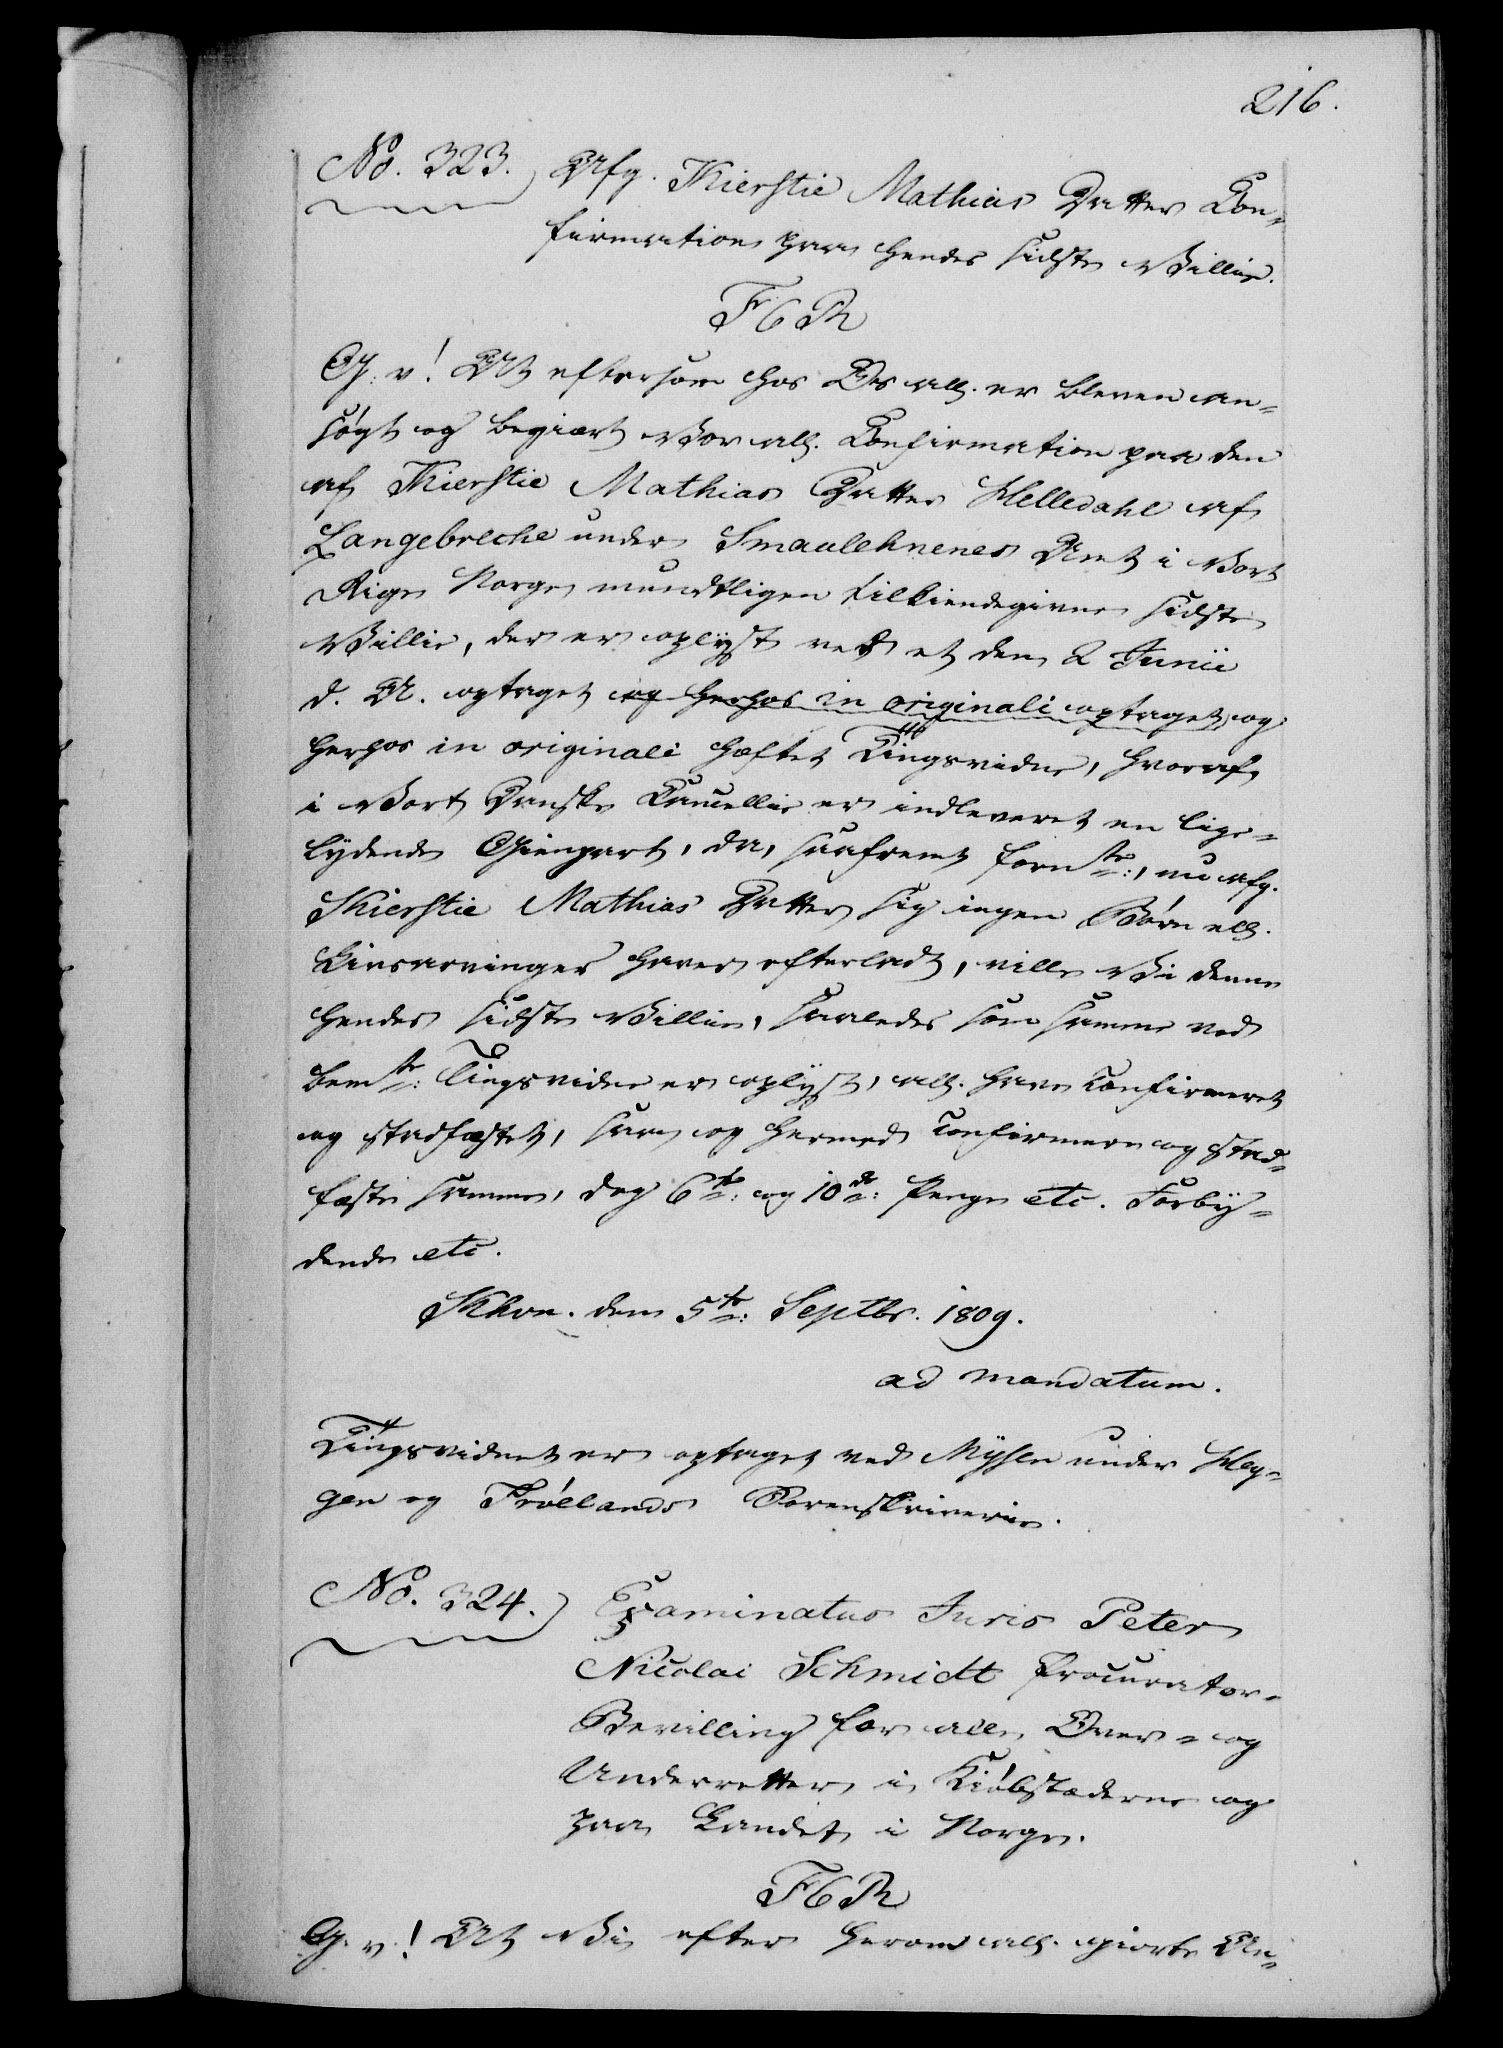 216.
No. 323. Afg. Kierstie Mathias Datter Con-
firmation paa hendes sidste Villie.
F6R
G: v! At eftersom hos Os all. er bleven an-
søgt og begiært Vor all. Confirmation paa den
af Kierstie Mathias Datter Helledahl af
Langebreche under Smaalehnenes Amt i Vort
Rige Norge mundtligen tilkiendegivne sidste
Villie, der er oplyst ved et den 2 Junii
d. A. optaget og herhos in originali optaget og
herhos in originali hæftet Tingsvidne, hvoraf
i Vort Danske Cancellie er indleveret en lige-
lydende Gienpart, da, saafremt forn te:, nu afg.
Kierstie Mathias Datter sig ingen Børn ell.
Livsarvinger haver efterladt, ville Vi denne
hendes sidste Villie, saaledes som samme ved
bem te: Tingsvidne er oplyst, all. have confirmeret
og stadfæstet, saa og hermed confirmere og stad-
fæste samme, dog 6te: og 10de: Penge etc. Forby-
dende etc.
Khvn. den 5te: Septbr. 1809.
ad mandatum.
Tingsvidnet er optaget ved Mysen under Heg-
gen og Frøllands Sorenskriverie.
No. 324. Examinatus Juris Peter
Nicolai Schmidt Procurator-
Bevilling for alle Over- og
Underretter i Kiøbstæderne og
paa Landet i Norge.
F6R
G. v! At Vi efter herom all. giorte An-